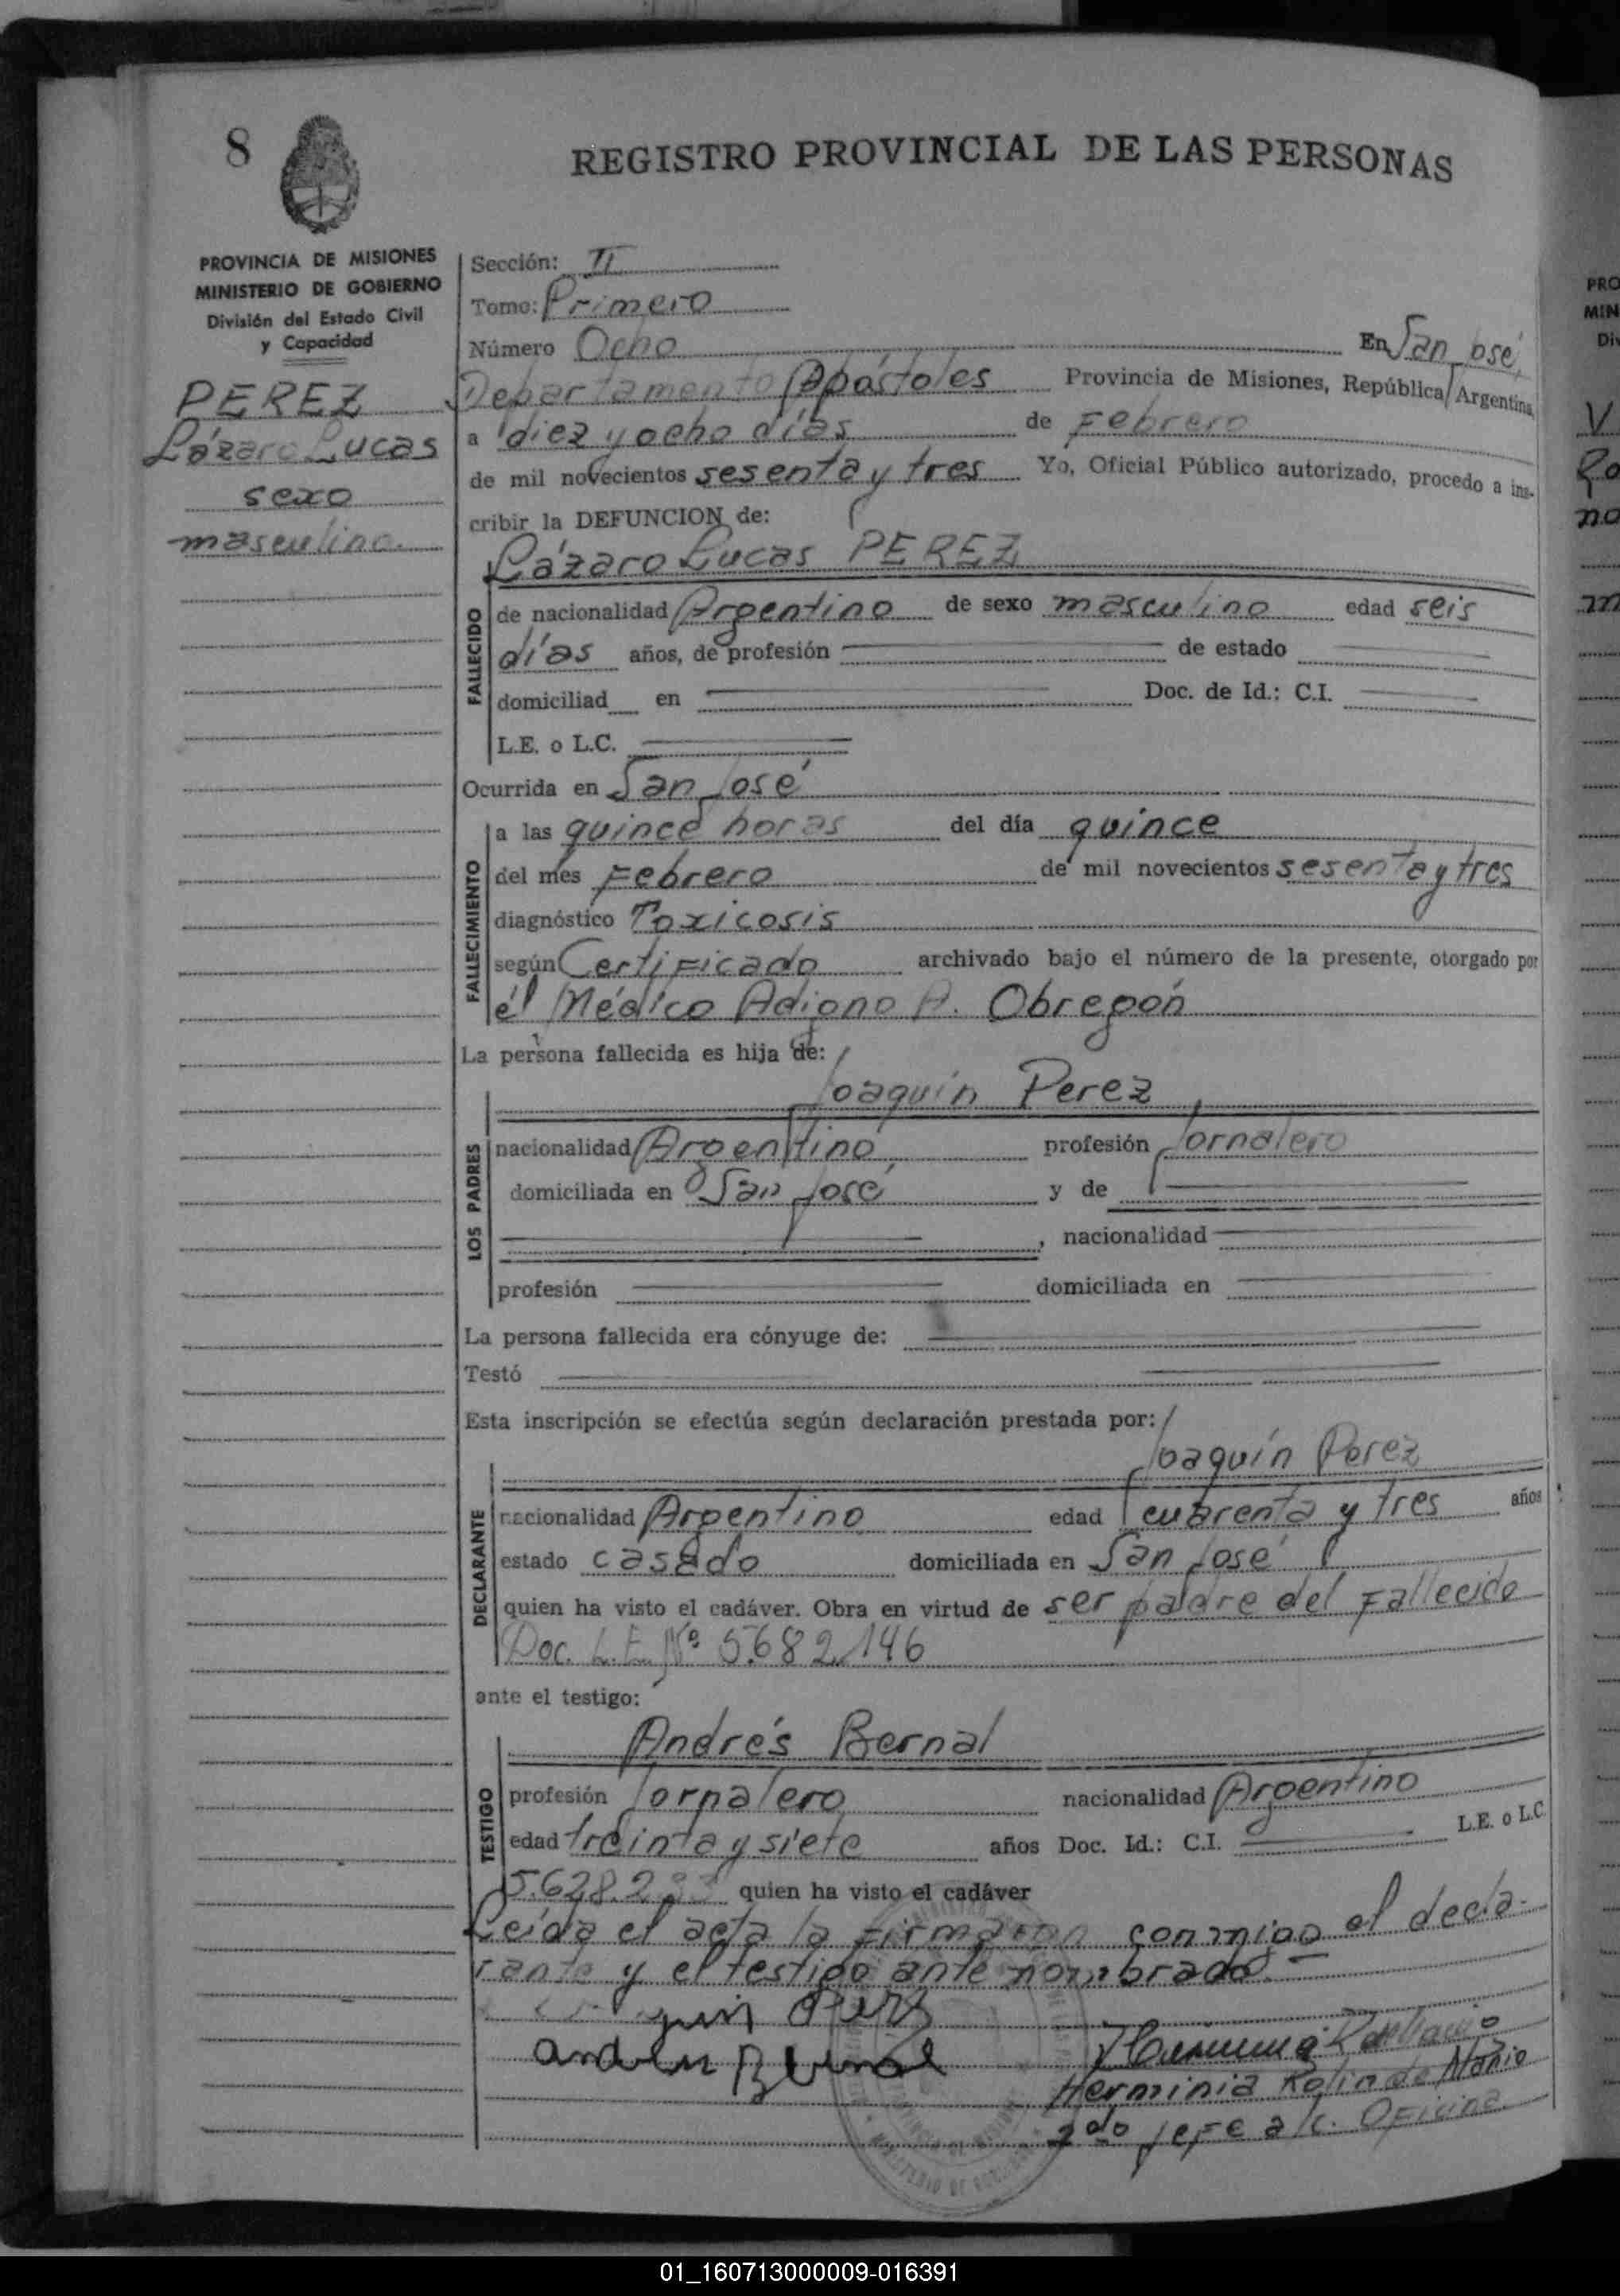 8
REGISTRO PROVINCIAL DE LAS PERSONAS
PROVINCIA DE MISIONES
MINISTERIO DE GOBIERNO
División del Estado Civil
y Capacidad
PEREZ
Lázaro Lucas
sexo
masculino.
Sección: II
Tomo: Primero
Número Ocho En San José,
Departamento Apóstoles Provincia de Misiones, República Argentina,
a diez y ocho días de Febrero
de mil novecientos sesenta y tres Yo, Oficial Público autorizado, procedo a ins-
cribir la DEFUNCION de:
Lázaro Lucas PEREZ
FALLECIDO
de nacionalidad Argentino de sexo masculino edad seis
días años, de profesión de estado
domiciliad en Doc. de Id.: C.I.
L.E. o L.C.
Ocurrida en San José
FALLECIMIENTO
a las quince horas del día quince
del mes Febrero de mil novecientos sesenta y tres
diagnóstico Toxicosis
según Certificado archivado bajo el número de la presente, otorgado por
el Médico A. Obregón
La persona fallecida es hija de:
Joaquín Perez
LOS PADRES
nacionalidad Argentino, profesión Jornalero
domiciliada en San José y de
, nacionalidad
profesión domiciliada en
La persona fallecida era cónyuge de:
Testó
Esta inscripción se efectúa según declaración prestada por:
Joaquín Perez
DECLARANTE
nacionalidad Argentino edad cuarenta y tres años
estado casado domiciliada en San José
quien ha visto el cadáver. Obra en virtud de ser padre del Fallecido
Doc. L.E. Nº 5682146
ante el testigo:
Andrés Bernal
TESTIGO
profesión Jornalero nacionalidad Argentino
edad treinta y siete años Doc. Id.: C.I. L.E. o L.C.
quien ha visto el cadáver
Leída el acta la firmaron conmigo el decla-
rante y el testigo ante nombrado.
Herminia Rolin de
2do Jefe a/c. Oficina
PRO
MIN
Di
01_160713000009-016391